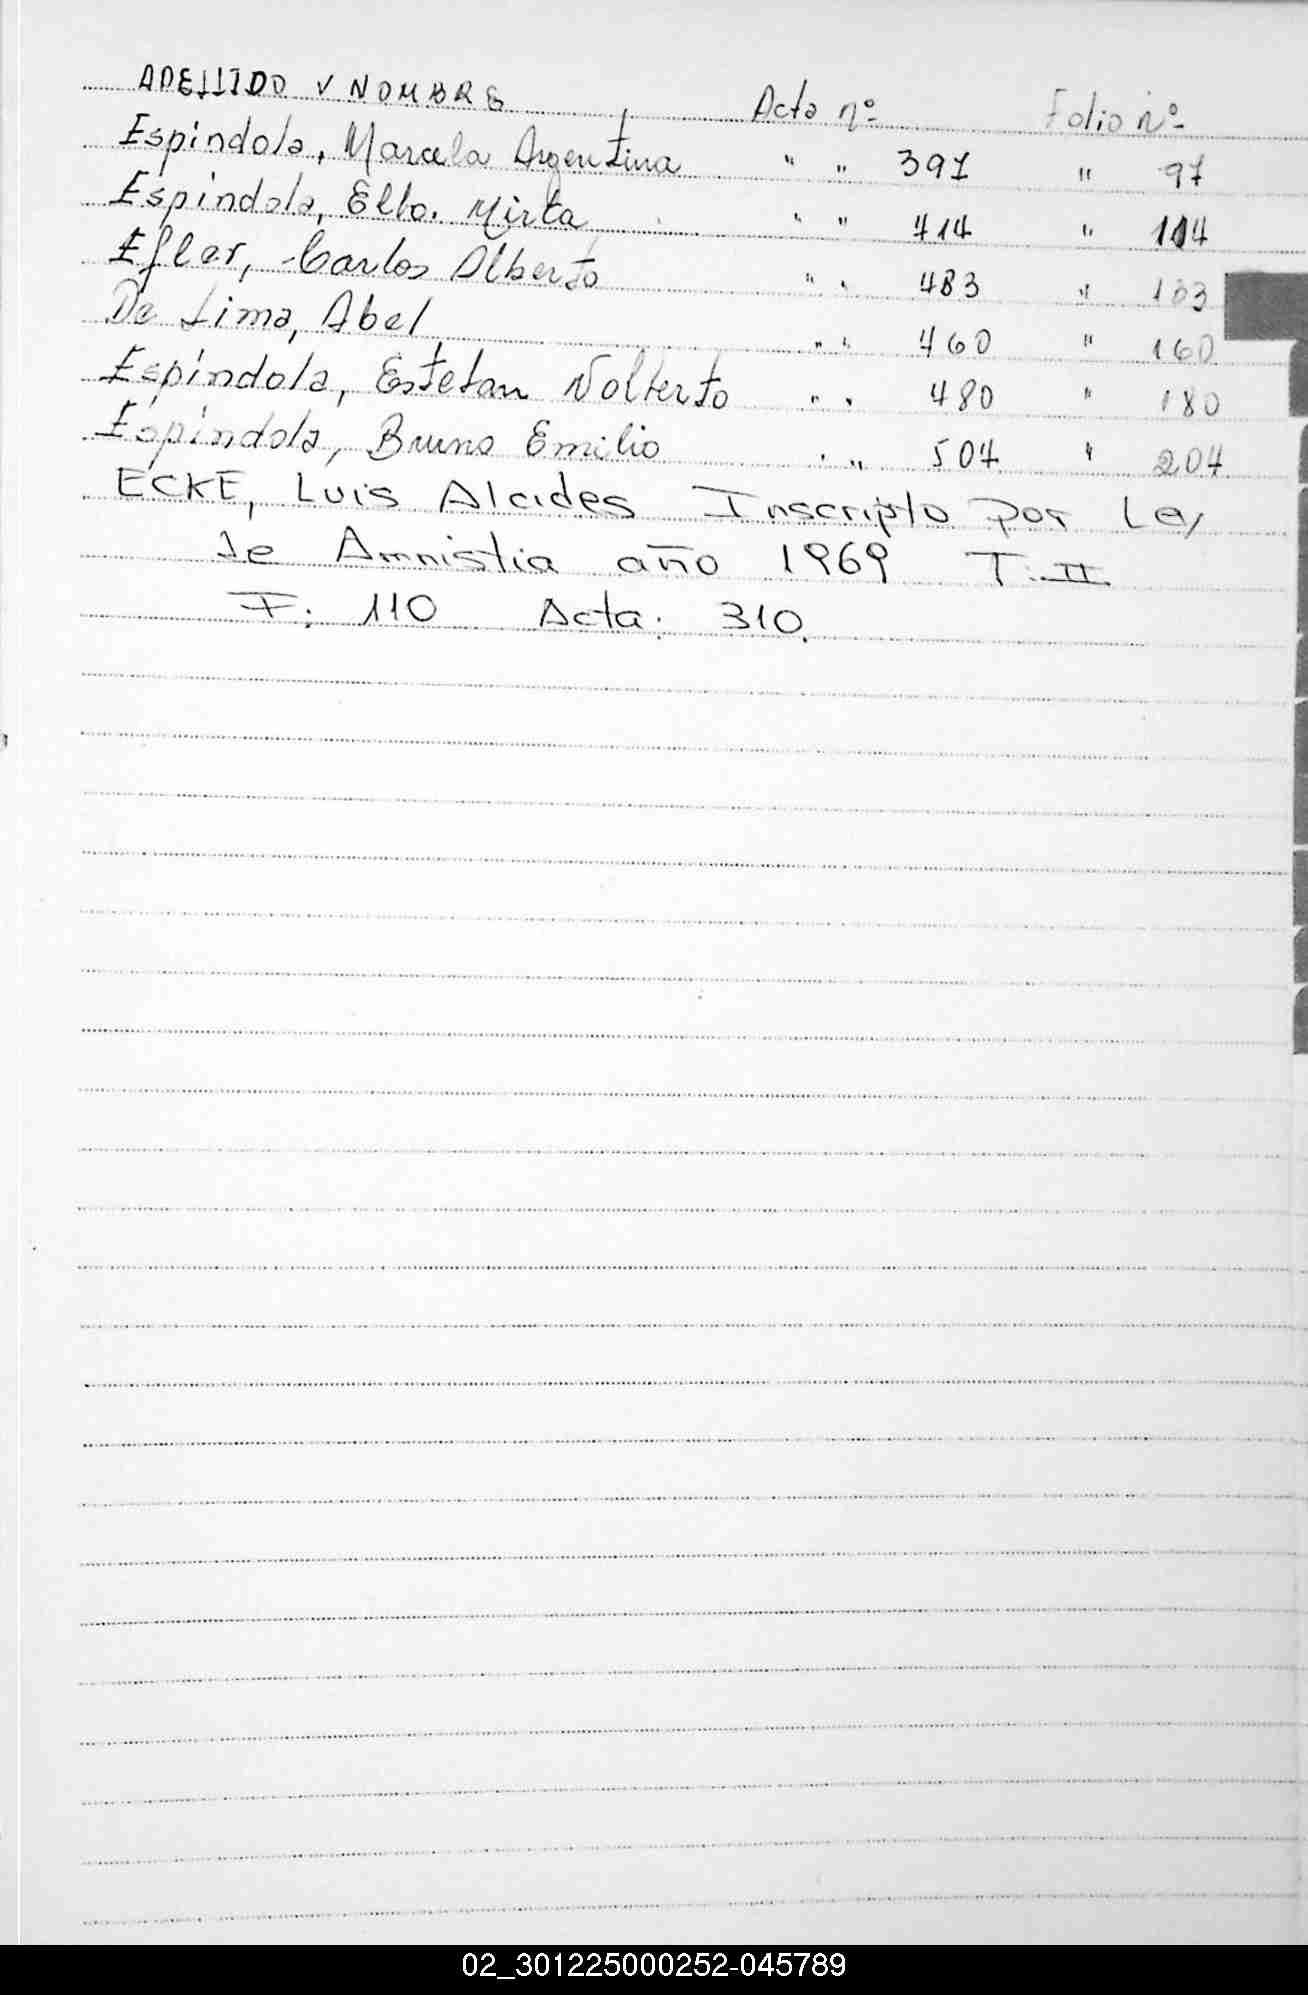 APELLIDO Y NOMBRE Acta nº- Folio nº-
Espindola, Marcela Argentina " " 391 " 97
Espindola, Elba. Mirta " " 414 " 114
Efler, Carlos Alberto " " 483 " 183
De Lima, Abel " " 460 " 160
Espíndola, Esteban Nolberto " " 480 " 180
Espíndola, Bruno Emilio " " 504 " 204
ECKE, Luis Alcides Inscripto por Ley
de Amnistia año 1969 T: II
F: 110 Acta: 310.
02_301225000252-045789